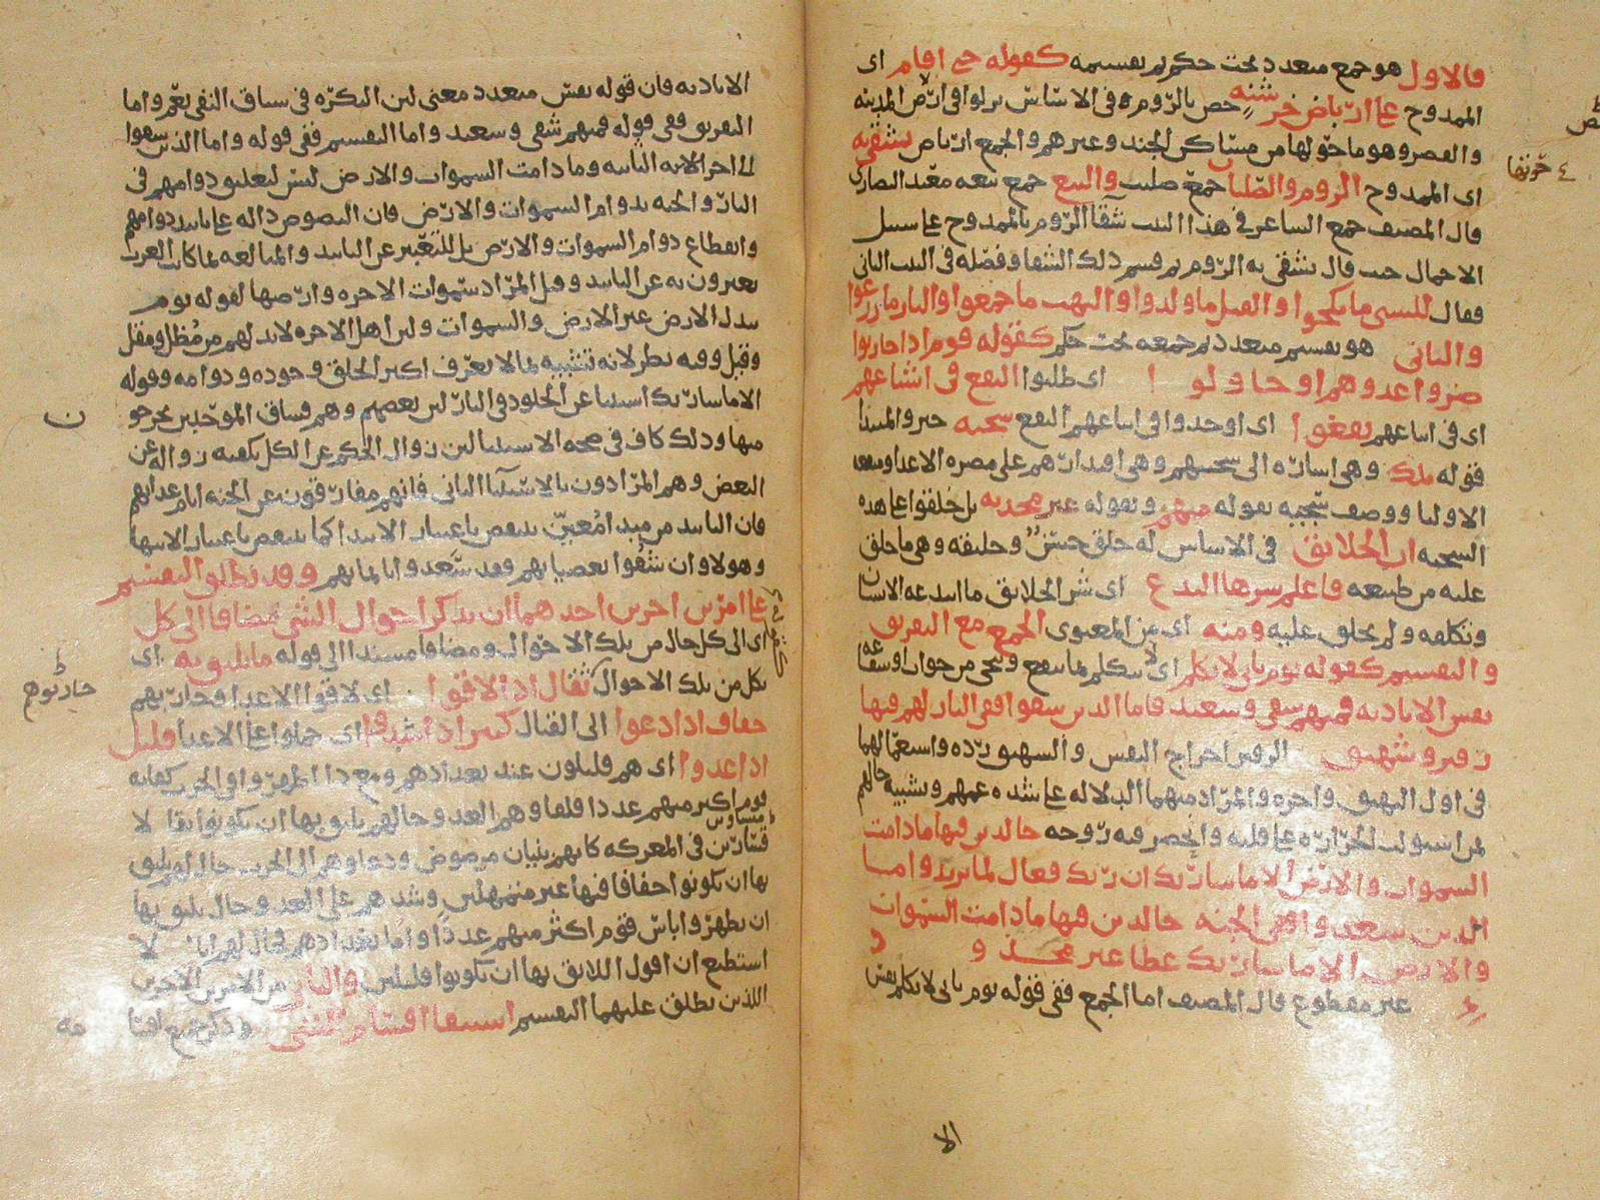 فالاول هو جمع متعدد تحت حكم ثم تقسيمه كقوله حتى اقام اى
الممدوح على ارباض خرشنه حصن بالروم وفى الاساس نزلوا فى ارض المدينه
والقصر وهو ما حولها من مساكن الجند وغيرهم والجمع ارباض تشقى به
اى الممدوح الروم والصلبان جمع صليب والبيع جمع بيعه معبد النصارى
قال المصنف جمع الشاعر فى هذا البيت شقا الروم بالممدوح على سبيل
الاجمال حيث قال تشقى به الروم ثم قسم ذلك الشقا وفصله فى البيت الثانى
فقال للسبى ما نكحوا والقتل ما ولدوا والنهب ما جمعوا والنار ما زرعوا
والثانى هو تقسيم متعدد ثم جمعه تحت حكم كقوله قوم اذا حاربوا
ضروا عدوهم او حاولوا اى طلبوا النفع فى اشياعهم
اى فى اتباعهم نفعوا اى اوجدوا فى اتباعهم النفع سجيه خبر والمبتدا
قوله تلك وهى اشاره الى سجيتهم وهى اقدارهم على مضره الاعدا ونفع
الاوليا ووصف سجيه بقوله منهم وبقوله غير محدثه بل خلقوا على هذه
السجيه ان الخلائق فى الاساس له خلق حسن وخليقه وهى ما خلق
عليه من طبيعه فاعلم شرها البدع اى شر الخلائق ما ابتدعه الانسان
وتكلفه ولم يخلق عليه ومنه اى من المعنوى الجمع مع التفريق
والتقسيم كقوله يوم ياتى لا تكلم اى لا تتكلم بما ينفع وينجى من جواب او شفاعه
نفس الا باذنه فمنهم شقى وسعيد فاما الذين شقوا ففى النار لهم فيها
زفير وشهيق الزفير اخراج النفس والشهيق رده واستعمالهما
فى اول النهيق واخره والمراد منهما الدلاله على شده غمهم وتشبيه حالهم
بمن استولت الحراره على قلبه وانحصر فيه روحه خالدين فيها ما دامت
السموات والارض الا ما شا ربك ان ربك فعال لما يريد واما
الذين سعدوا ففى الجنه خالدين فيها ما دامت السموات
والارض الا ما شا ربك عطا غير مجذوذ
غير مقطوع قال المصنف اما الجمع ففى قوله يوم ياتى لا تكلم نفس
الا
الا باذنه فان قوله نفس متعدد معنى لان النكره فى سياق النفى تعم واما
التفريق ففى قوله فمنهم شقى وسعيد واما التقسيم ففى قوله واما الذين شقوا
الى اخر الايه الثانيه وما دامت السموات والارض ليس لتعليق دوامهم فى
النار والجنه بدوام السموات والارض فان النصوص داله على تابيد دوامهم
وانقطاع دوام السموات والارض بل للتعبير عن التابيد والمبالغه بما كانت العرب
يعبرون به عن التابيد وقيل المراد سموات الاخره وارضها لقوله يوم
تبدل الارض غير الارض والسموات ولان اهل الاخره لا بد لهم من مظل ومقل
وقيل وفيه نظر لانه تشبيه بما لا يعرف اكثر الخلق وجوده ودوامه وقوله
الا ما شا ربك استثنا عن الخلود فى النار لان بعضهم وهم فساق الموحدين يخرجون
منها وذلك كاف فى صحه الاستثنا لان زوال الحكم عن الكل يكفيه زواله عن
البعض وهم المرادون بالاستثنا الثانى فانهم مفارقون عن الجنه ايام عذابهم
فان التابيد من مبدا معين ينقص باعتبار الابتدا كما ينقص باعتبار الانتها
وهولا وان شقوا بعصيانهم فقد سعدوا بايمانهم وقد يطلق التقسيم
على امرين اخرين احدهما ان يذكر احوال الشى مضافا الى كل
اى الى كل حال من تلك الاحوال ومضافا مستندا الى قوله ما يليق به اى
بكل من تلك الاحوال ثقال اذا لاقوا اى لاقوا الاعدا وحاربهم
حاربوهم
خفاف اذا دعوا الى القتال كثير اذا شدوا اى حملوا على الاعدا قليل
اذا عدوا اى هم قليلون عند تعدادهم ومع ذا اظهروا فى الحرب كفايه
قوم اكثر منهم عددا فلقاوهم العدو حالهم يليق بها ان يكونوا ثقالا
قتارين فى المعركه كانهم بنيان مرصوص ودعاوهم الى الحرب حال لهم يليق
بها ان يكونوا خفافا فيها غير متمهلين وشدهم على العدو حال يليق بها
ان يظهروا باس قوم اكثر منهم عددا واما تعدادهم فحال لهم انا لا
استطيع ان اقول اللائق بها ان يكونوا قليلين والثانى من الامرين الاخرين
اللذين يطلق عليهما التقسيم استيفا اقسام الشى